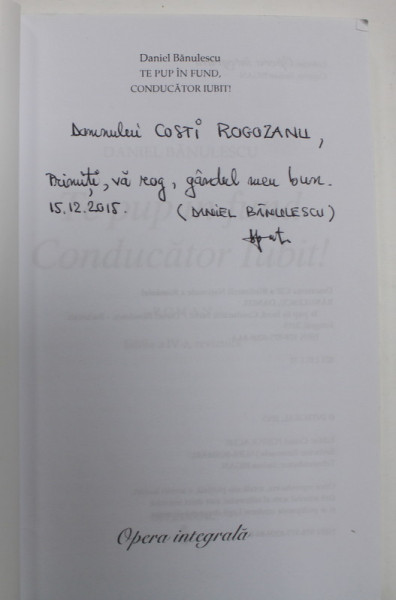 Daniel Bănulescu
TE PUP ÎN FUND,
CONDUCĂTOR IUBIT!
Domnului COSTI ROGOZANU,
Primiți, vă rog, gândul meu bun.
15.12.2015. (DANIEL BĂNULESCU)
Opera integrală